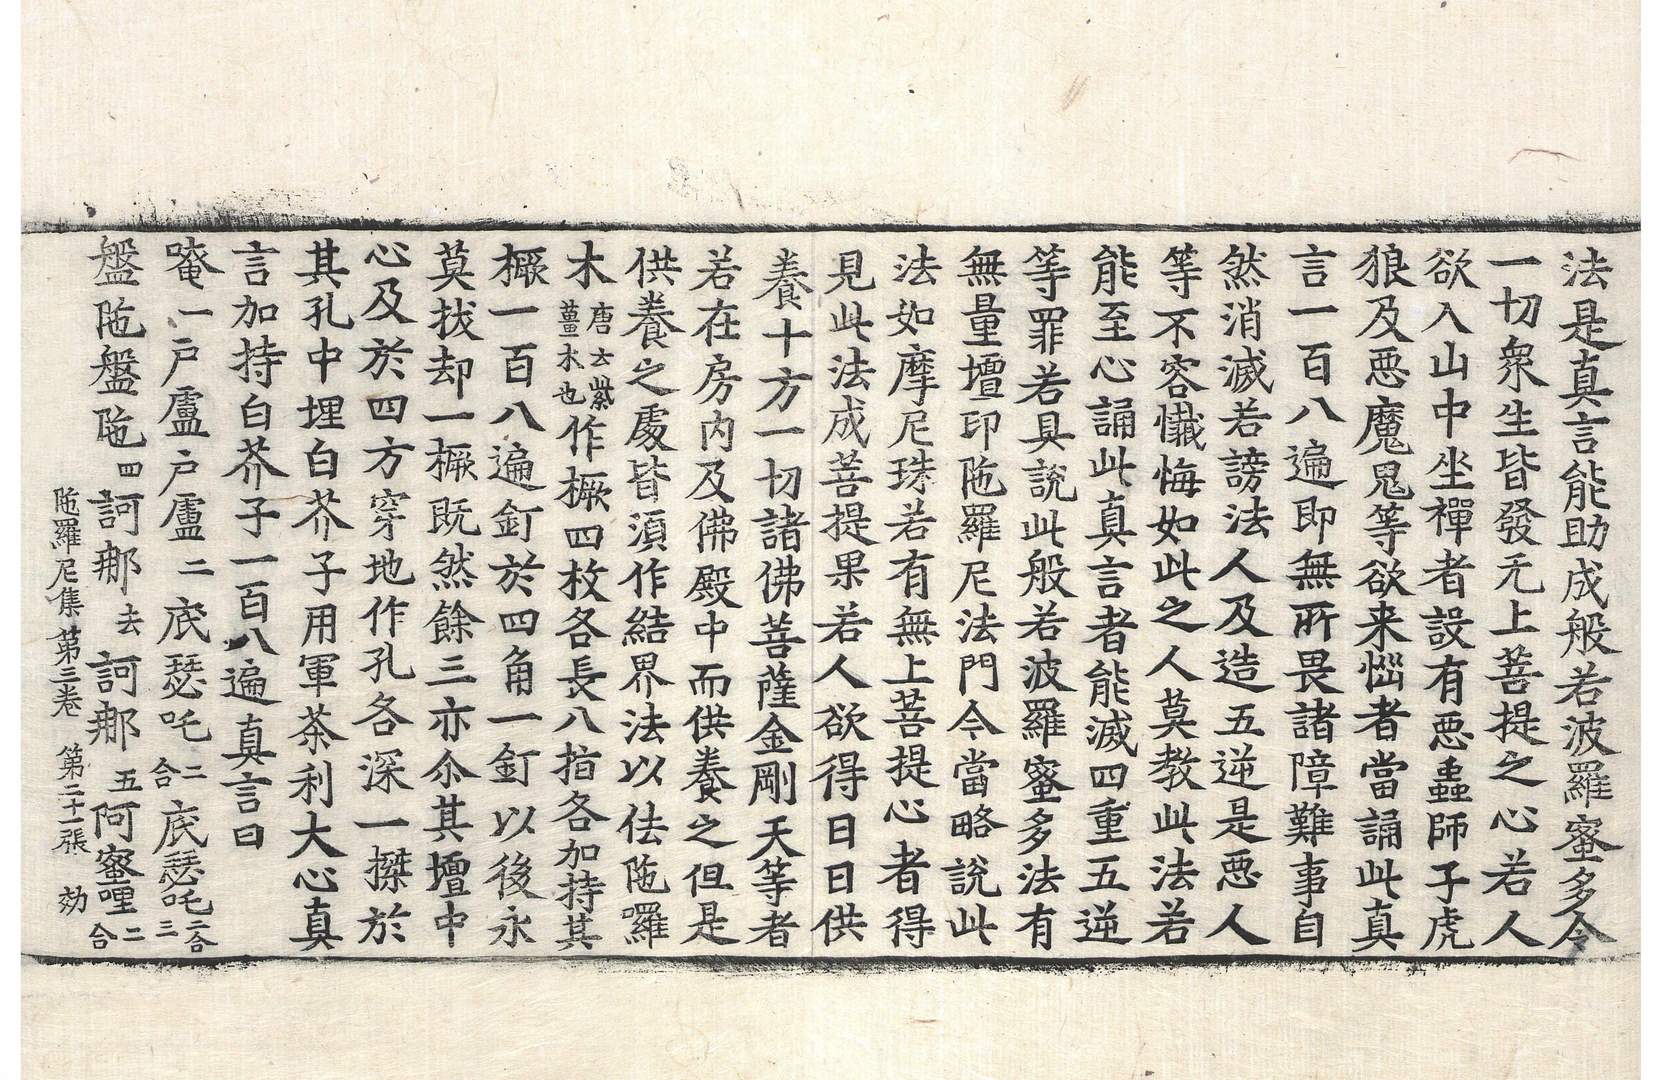 法是真言能助成般若波羅蜜多令
一切衆生皆發无上菩提之心若人
欲入山中坐禪者設有惡蟲師子虎
狼及惡魔鬼等欲来惱者當誦此真
言一百八遍即無所畏諸障難事自
然消滅若謗法人及造五逆是惡人
等不容懺悔如此之人莫教此法若
能至心誦此真言者能滅四重五逆
等罪若具說此般若波羅蜜多法有
無量壇印陁羅尼法門今當略說此
法如摩尼珠若有無上菩提心者得
見此法成菩提果若人欲得日日供
養十方一切諸佛菩薩金剛天等者
若在房內及佛殿中而供養之但是
供養之處皆須作結界法以佉陁囉
木唐云紫薑木也作橛四枚各長八指各加持其
橛一百八遍釘於四角一釘以後永
莫拔却一橛既然餘三亦尒其壇中
心及於四方穿地作孔各深一搩於
其孔中埋白芥子用軍茶利大心真
言加持白芥子一百八遍真言曰
唵一戸盧戸盧二底瑟吒二合底瑟吒二合三
盤陁盤陁四訶那去訶那五阿蜜哩二合
陁羅尼集 第三卷 第二十一張 効